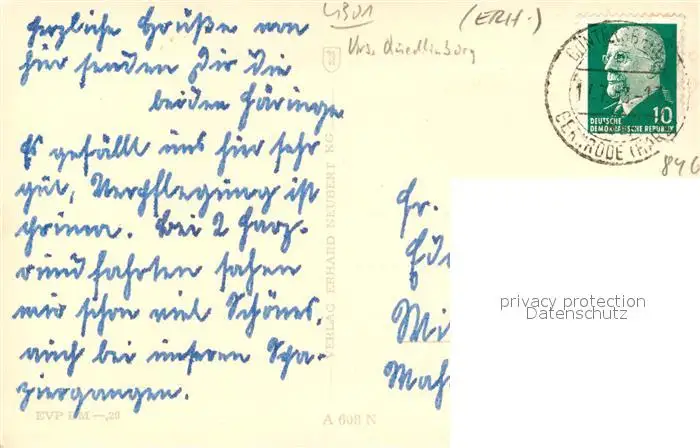 Herzliche Grüße von
hier senden Dir die
beiden Häringe
Es gefällt uns hier sehr
gut, Verpflegung ist
prima. Bei 2 Harz-
rundfahrten sahen
wir schon viel Schönes,
auch bei unseren Spa-
ziergängen.
EVP DM —,20
4301
(ERH.)
Krs. Quedlinburg
VERLAG ERHARD NEUBERT KG
A 608 N
GERNRODE (HARZ)
10
DEUTSCHE
DEMOKRATISCHE REPUBLIK
846
Fr.
Mi
Mah
privacy protection
Datenschutz